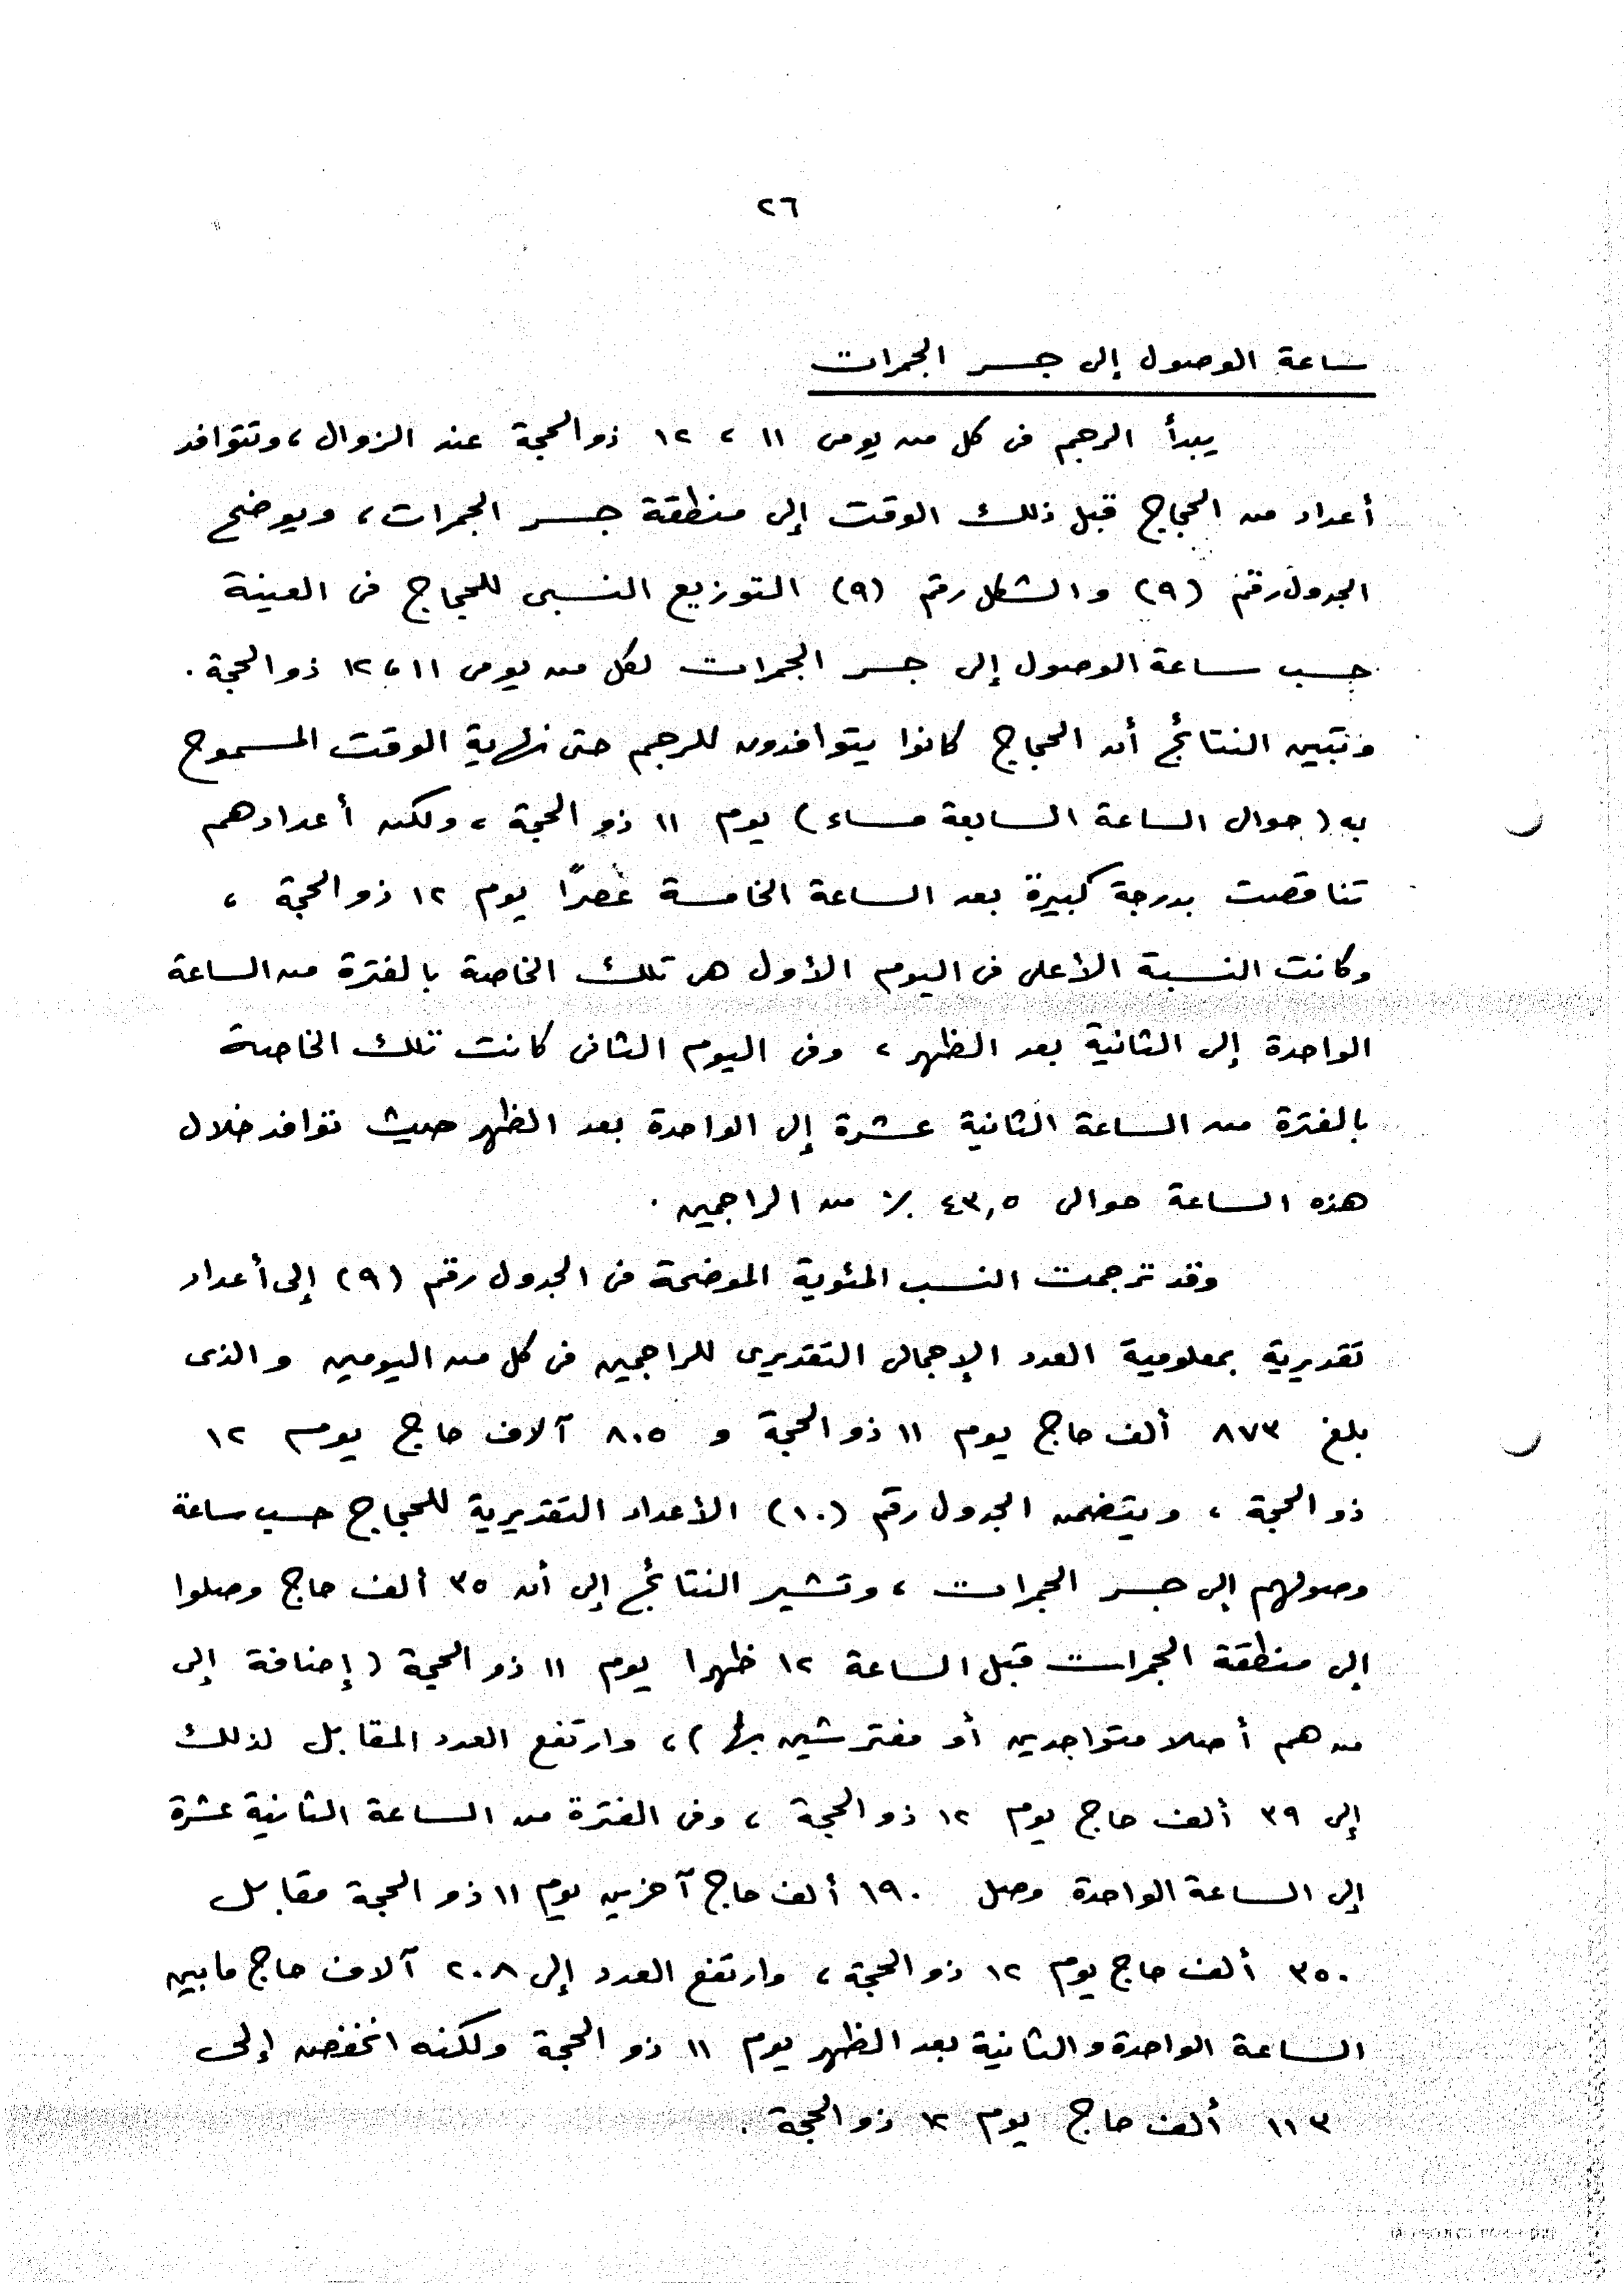 ٢٦
ساعة الوصول إلى جسر الجمرات
يبدأ الرجم فى كل من يومى ١١ ، ١٢ ذو الحجة عند الزوال ، وتتوافد
أعداد من الحجاج قبل ذلك الوقت إلى منطقة جسر الجمرات ، ويوضح
الجدول رقم (٩) والشكل رقم (٩) التوزيع النسبى للحجاج فى العينة
حسب ساعة الوصول إلى جسر الجمرات لكل من يومى ١١ ، ١٢ ذو الحجة .
وتبين النتائج أن الحجاج كانوا يتوافدون للرجم حتى نهاية الوقت المسموح
به ( حوالى الساعة السابعة مساء ) يوم ١١ ذو الحجة ، ولكن أعدادهم
تناقصت بدرجة كبيرة بعد الساعة الخامسة عصرًا يوم ١٢ ذو الحجة ،
وكانت النسبة الأعلى فى اليوم الأول هى تلك الخاصة بالفترة من الساعة
الواحدة إلى الثانية بعد الظهر ، وفى اليوم الثانى كانت تلك الخاصة
بالفترة من الساعة الثانية عشرة إلى الواحدة بعد الظهر حيث توافد خلال
هذه الساعة حوالى ٤٣,٥ ٪ من الراجمين .
وقد ترجمت النسب المئوية الموضحة فى الجدول رقم (٩) إلى أعداد
تقديرية بمعلومية العدد الإجمالى التقديرى للراجمين فى كل من اليومين والذى
بلغ ٨٧٣ ألف حاج يوم ١١ ذو الحجة و ٨٠٥ آلاف حاج يوم ١٢
ذو الحجة ، ويتضمن الجدول رقم (١٠) الأعداد التقديرية للحجاج حسب ساعة
وصولهم إلى جسر الجمرات ، وتشير النتائج إلى أن ٣٥ ألف حاج وصلوا
إلى منطقة الجمرات قبل الساعة ١٢ ظهرا يوم ١١ ذو الحجة ( إضافة إلى
من هم أصلا متواجدين أو مفترشين بها ) ، وارتفع العدد المقابل لذلك
إلى ٣٩ ألف حاج يوم ١٢ ذو الحجة ، وفى الفترة من الساعة الثانية عشرة
إلى الساعة الواحدة وصل ١٩٠ ألف حاج آخرين يوم ١١ ذو الحجة مقابل
٣٥٠ ألف حاج يوم ١٢ ذو الحجة ، وارتفع العدد إلى ٢٠٨ آلاف حاج مابين
الساعة الواحدة والثانية بعد الظهر يوم ١١ ذو الحجة ولكنه انخفض إلى
١١٣ ألف حاج يوم ١٢ ذو الحجة .